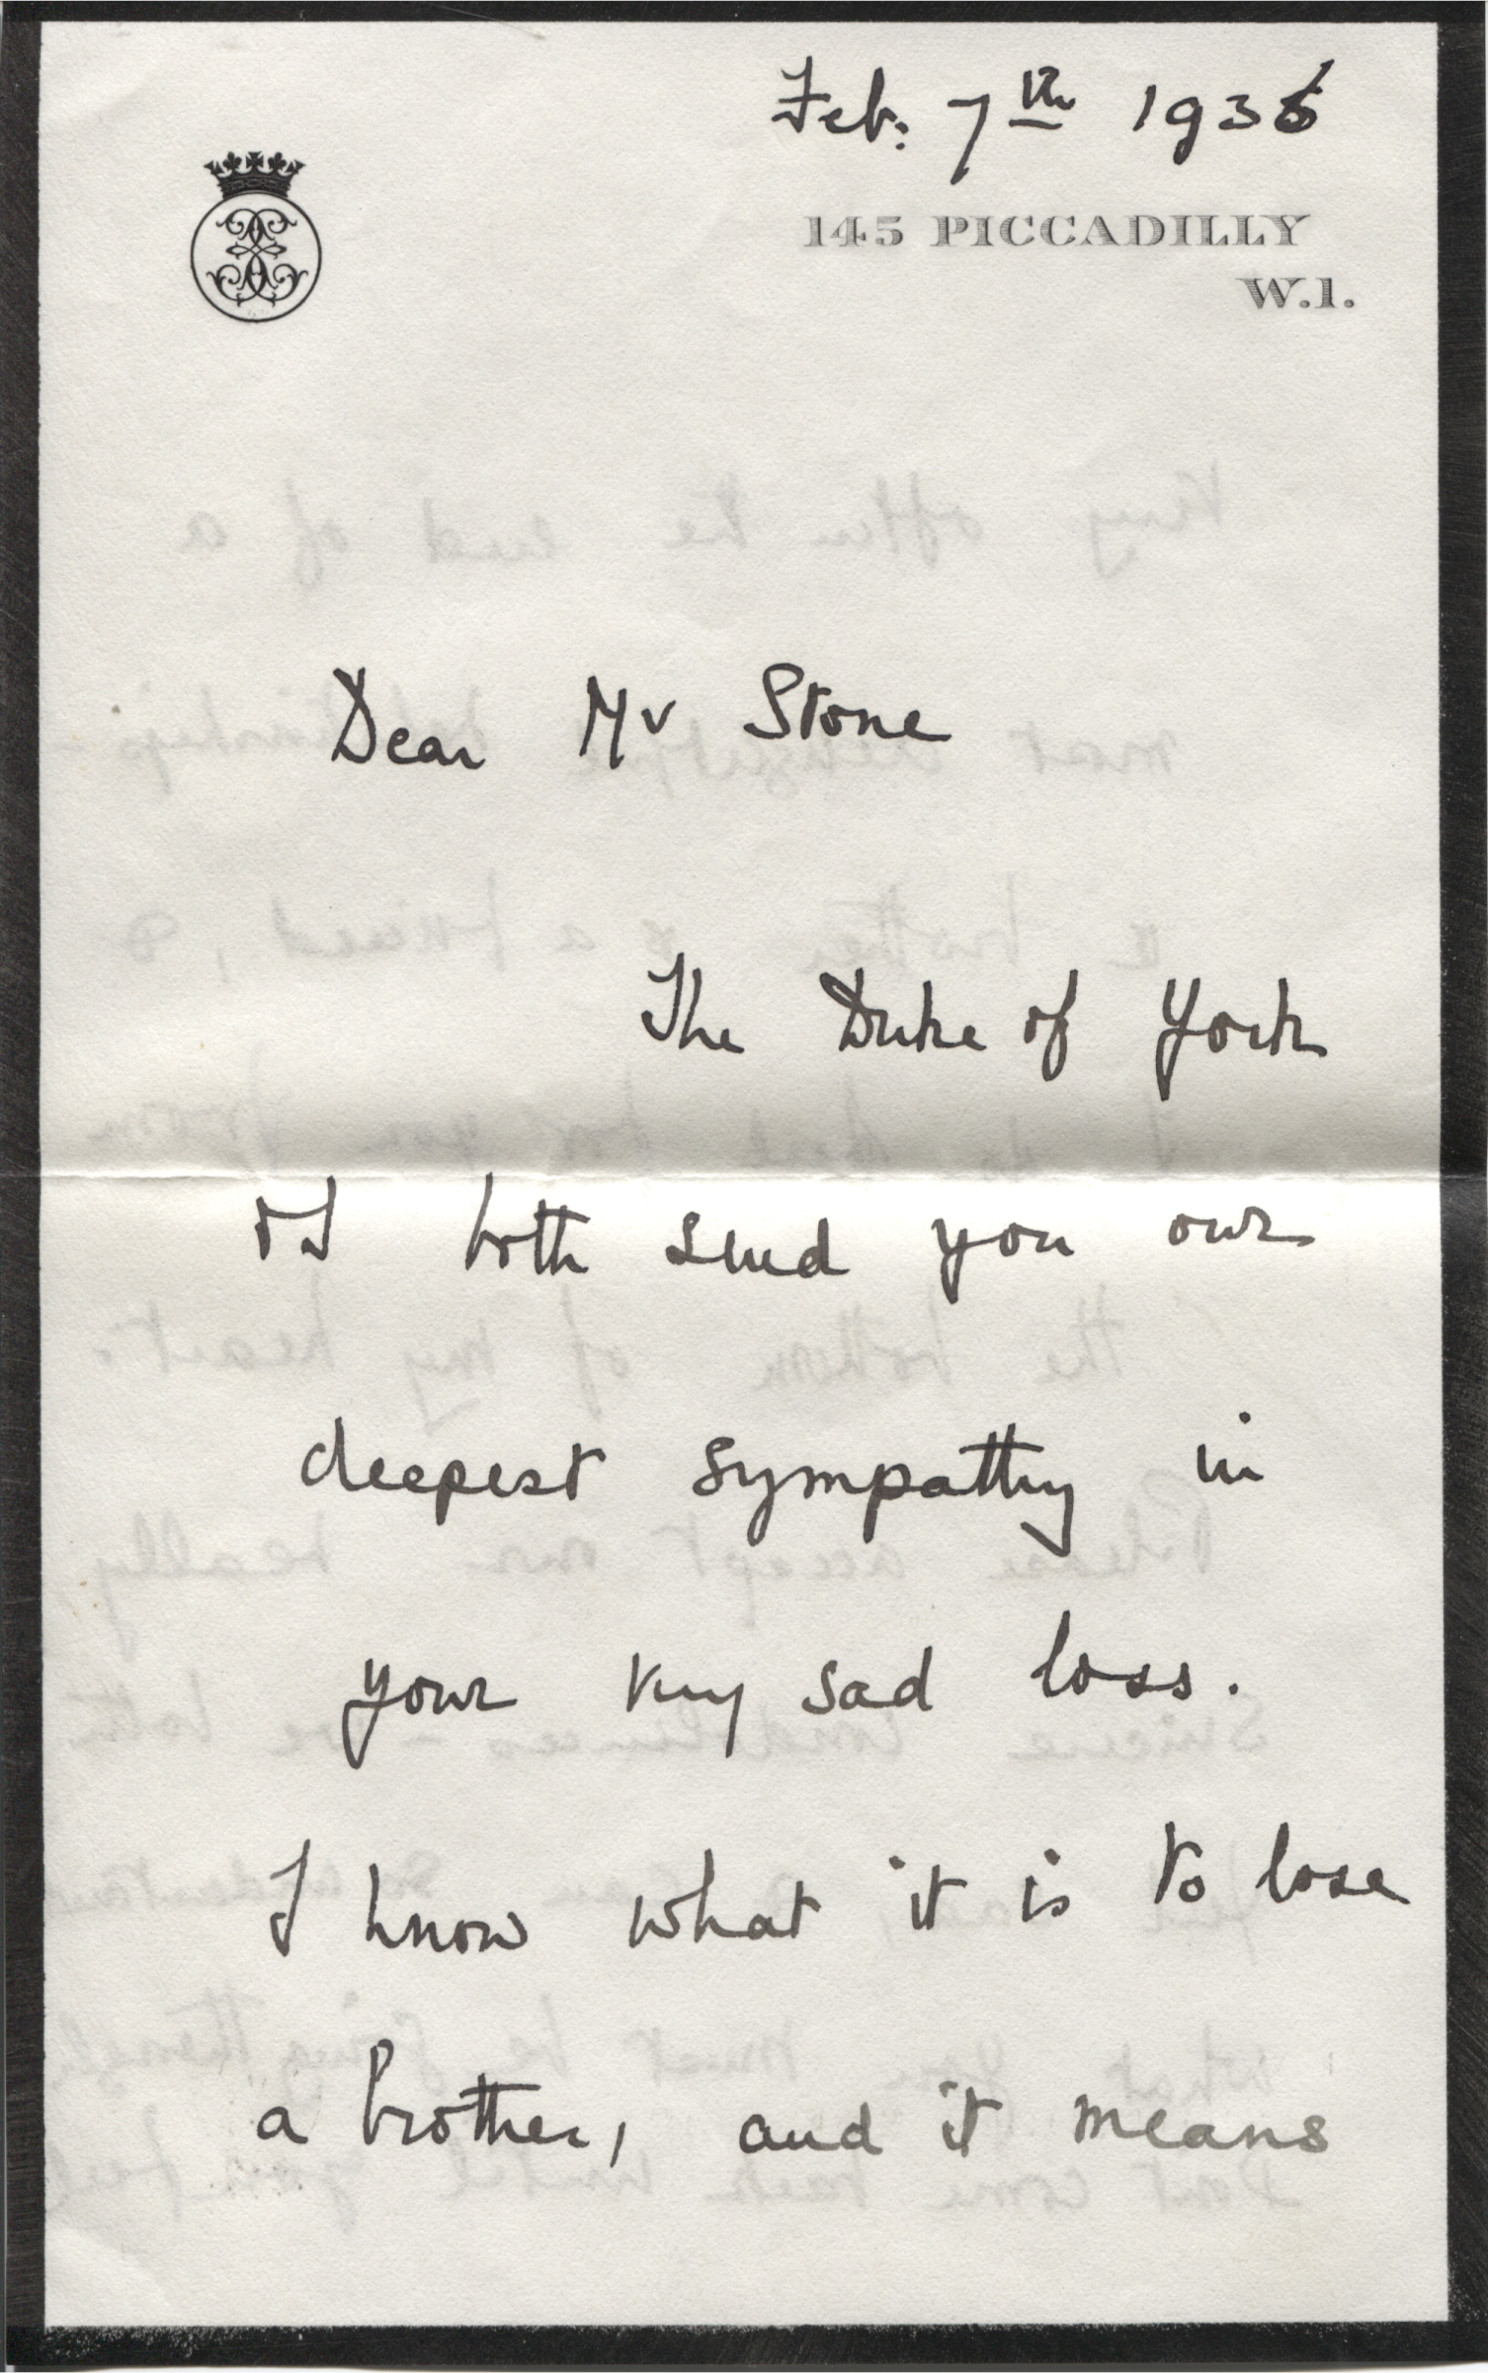 Feb: 7th 1936
145 PICCADILLY
W.1.
Dear Mr Stone
The Duke of York
& I both send you our
deepest sympathy in
your very sad loss.
I know what it is to lose
a brother, and it means